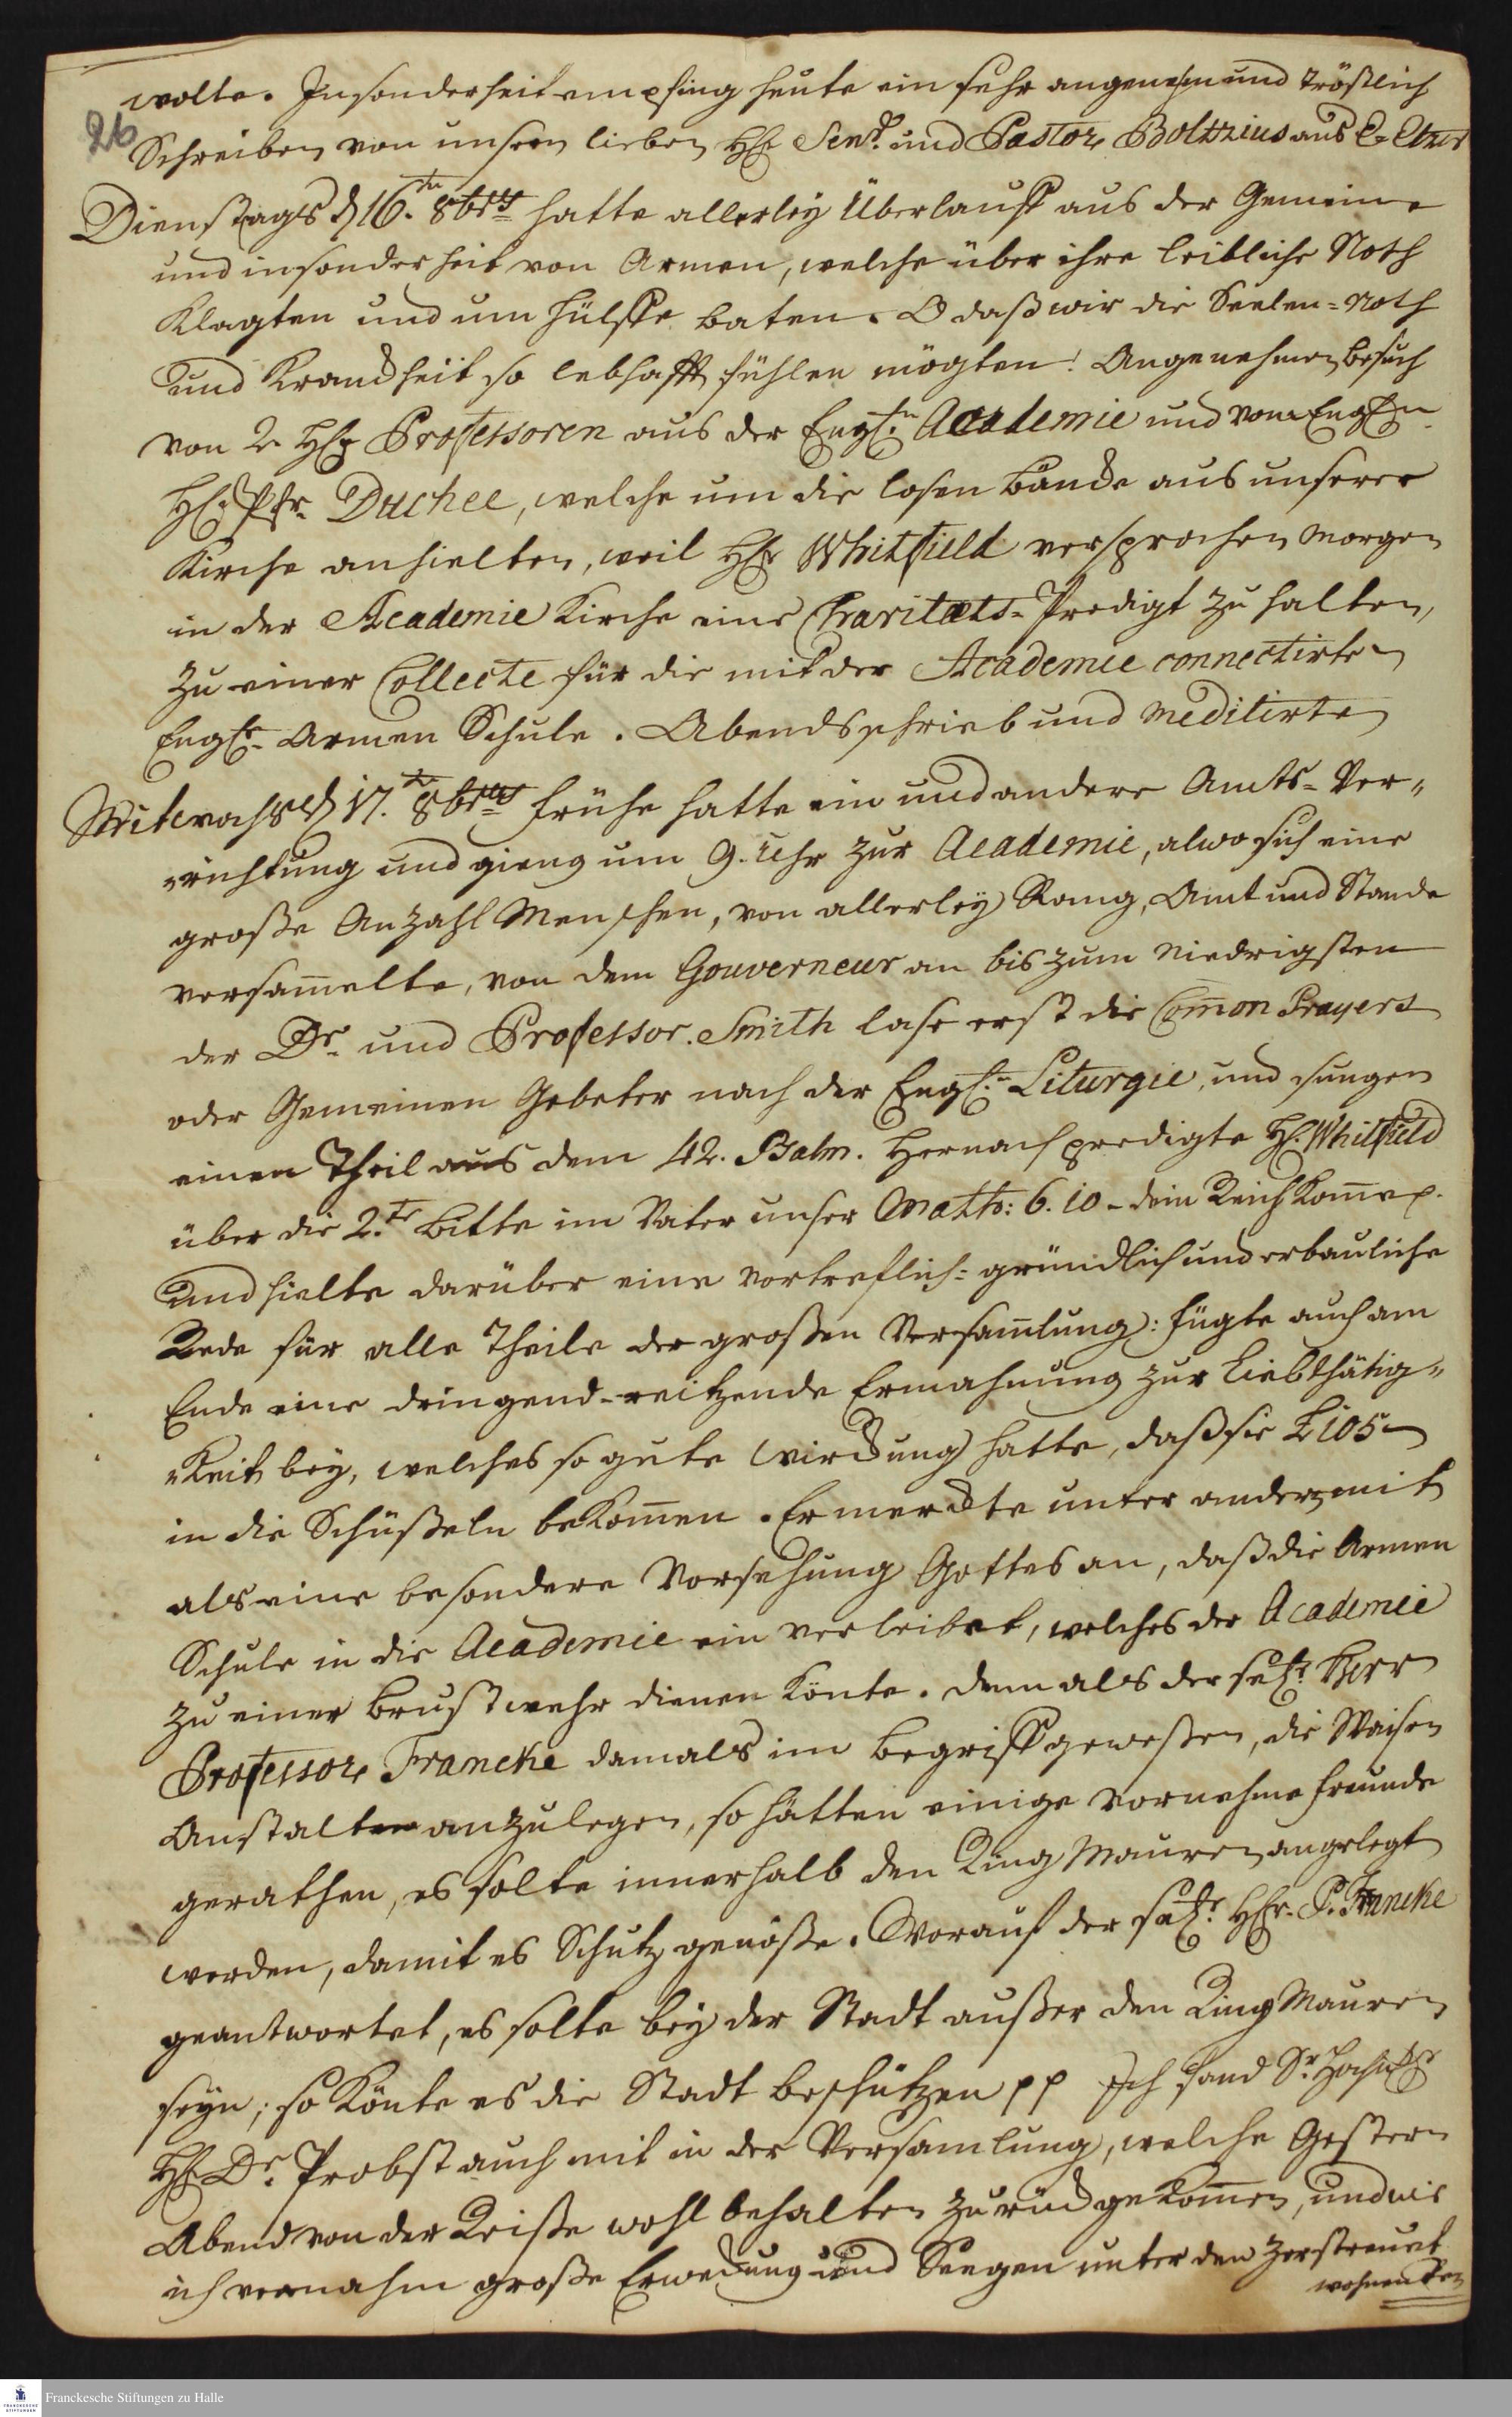 26
wolte. Insonderheit empfing heute ein sehr angenehm und tröstlich
Schreiben von unsern lieben HE Sen.r und Pastor Boltzius aus E. Ebenz
Dienstags d 16.ten 8brs hatte allerley Überlauff aus der Gemeine
und insonderheit von Armen, welche über ihre leibliche Noth
klagten und um Hülffe baten. O daß wir die Seelen-Noth
und Kranckheit so lebhafft fühlen mögten! Angenehmen besuch
von 2 HE Professoren aus der Engl.n Academie und vom Engln
HE. Pfr. Duchee, welche um die losen bäncke aus unserer
Kirche anhielten, weil HE Whitfield versprochen morgen
in der Academie Kirche eine Charitæts-Predigt zu halten,
zu einer Collecte für die mit der Academie connectirte
Engl. Armen Schule. Abends schrieb und meditirte
Mitwochs d 17.ten 8brs frühe hatte ein und andere Amts-Ver-
richtung und gieng um 9. Uhr zur Academie, alwo sich eine
große Anzahl Menschen, von allerley Rang, Amt und Stande
versam̅elte, von dem Gouverneur an bis zum niedrigsten
der Dr. und Professor. Smith lase erst die Com̅on Prayers
oder Gemeinen Gebeter nach der Engl.n Liturgie, und sungen
einen Theil aus dem 42. Psalm. Hernach predigte H. Whitfield
über die 2.te bitte im Vater unser Matth: 6. 10 - dein Reich kom̅e p.
und hielte darüber eine vortreflich- gründlich und erbauliche
Rede für alle Theile der großen Versam̅lung: fügte auch am
Ende eine dringend-reitzende Ermahnung zur Liebthätig-
keit bey, welches so gute Wirckung hatte, daß sie £ 105
in die Schüßeln bekom̅en. Er merckte unter andern mit
als eine besondere Vorsehung Gottes an, daß die Armen
Schule in die Academie ein verleibet, welches der Academie
zu einer Brustwehr dienen könte. denn als der sel. Herr
Professor Francke damals im begriff gewesen, die Waisen
Anstalten anzulegen, so hätten einige vornehme freunde
gerathen, es solte innerhalb den Ring Mauren angelegt
werden, damit es Schutz genöße. Worauf der sel. HEr. P. Francke
geantwortet, es solte bey der Stadt außer den Ring Mauren
seyn; so könte es die Stadt beschützen pp Ich fand Sr. Hochw
HE Dr. Probst auch mit in der Versamlung, welche Gestern
Abend von der Reise wohl behalten zurück gekom̅en, und wie
ich vernahm große Erweckung und Seegen unter den zerstreuet
wohnenden
Franckesche Stiftungen zu Halle